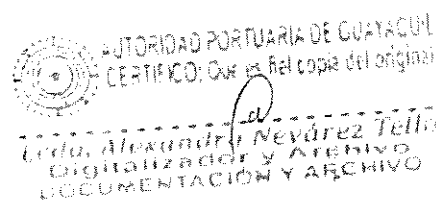 AUTORIDAD PORTUARIA DE GUAYAQUIL
CERTIFICO: Que es fiel copia del original
Lcda. Alexandra Nevárez Tello
Digitalizador y Archivo
DOCUMENTACIÓN Y ARCHIVO